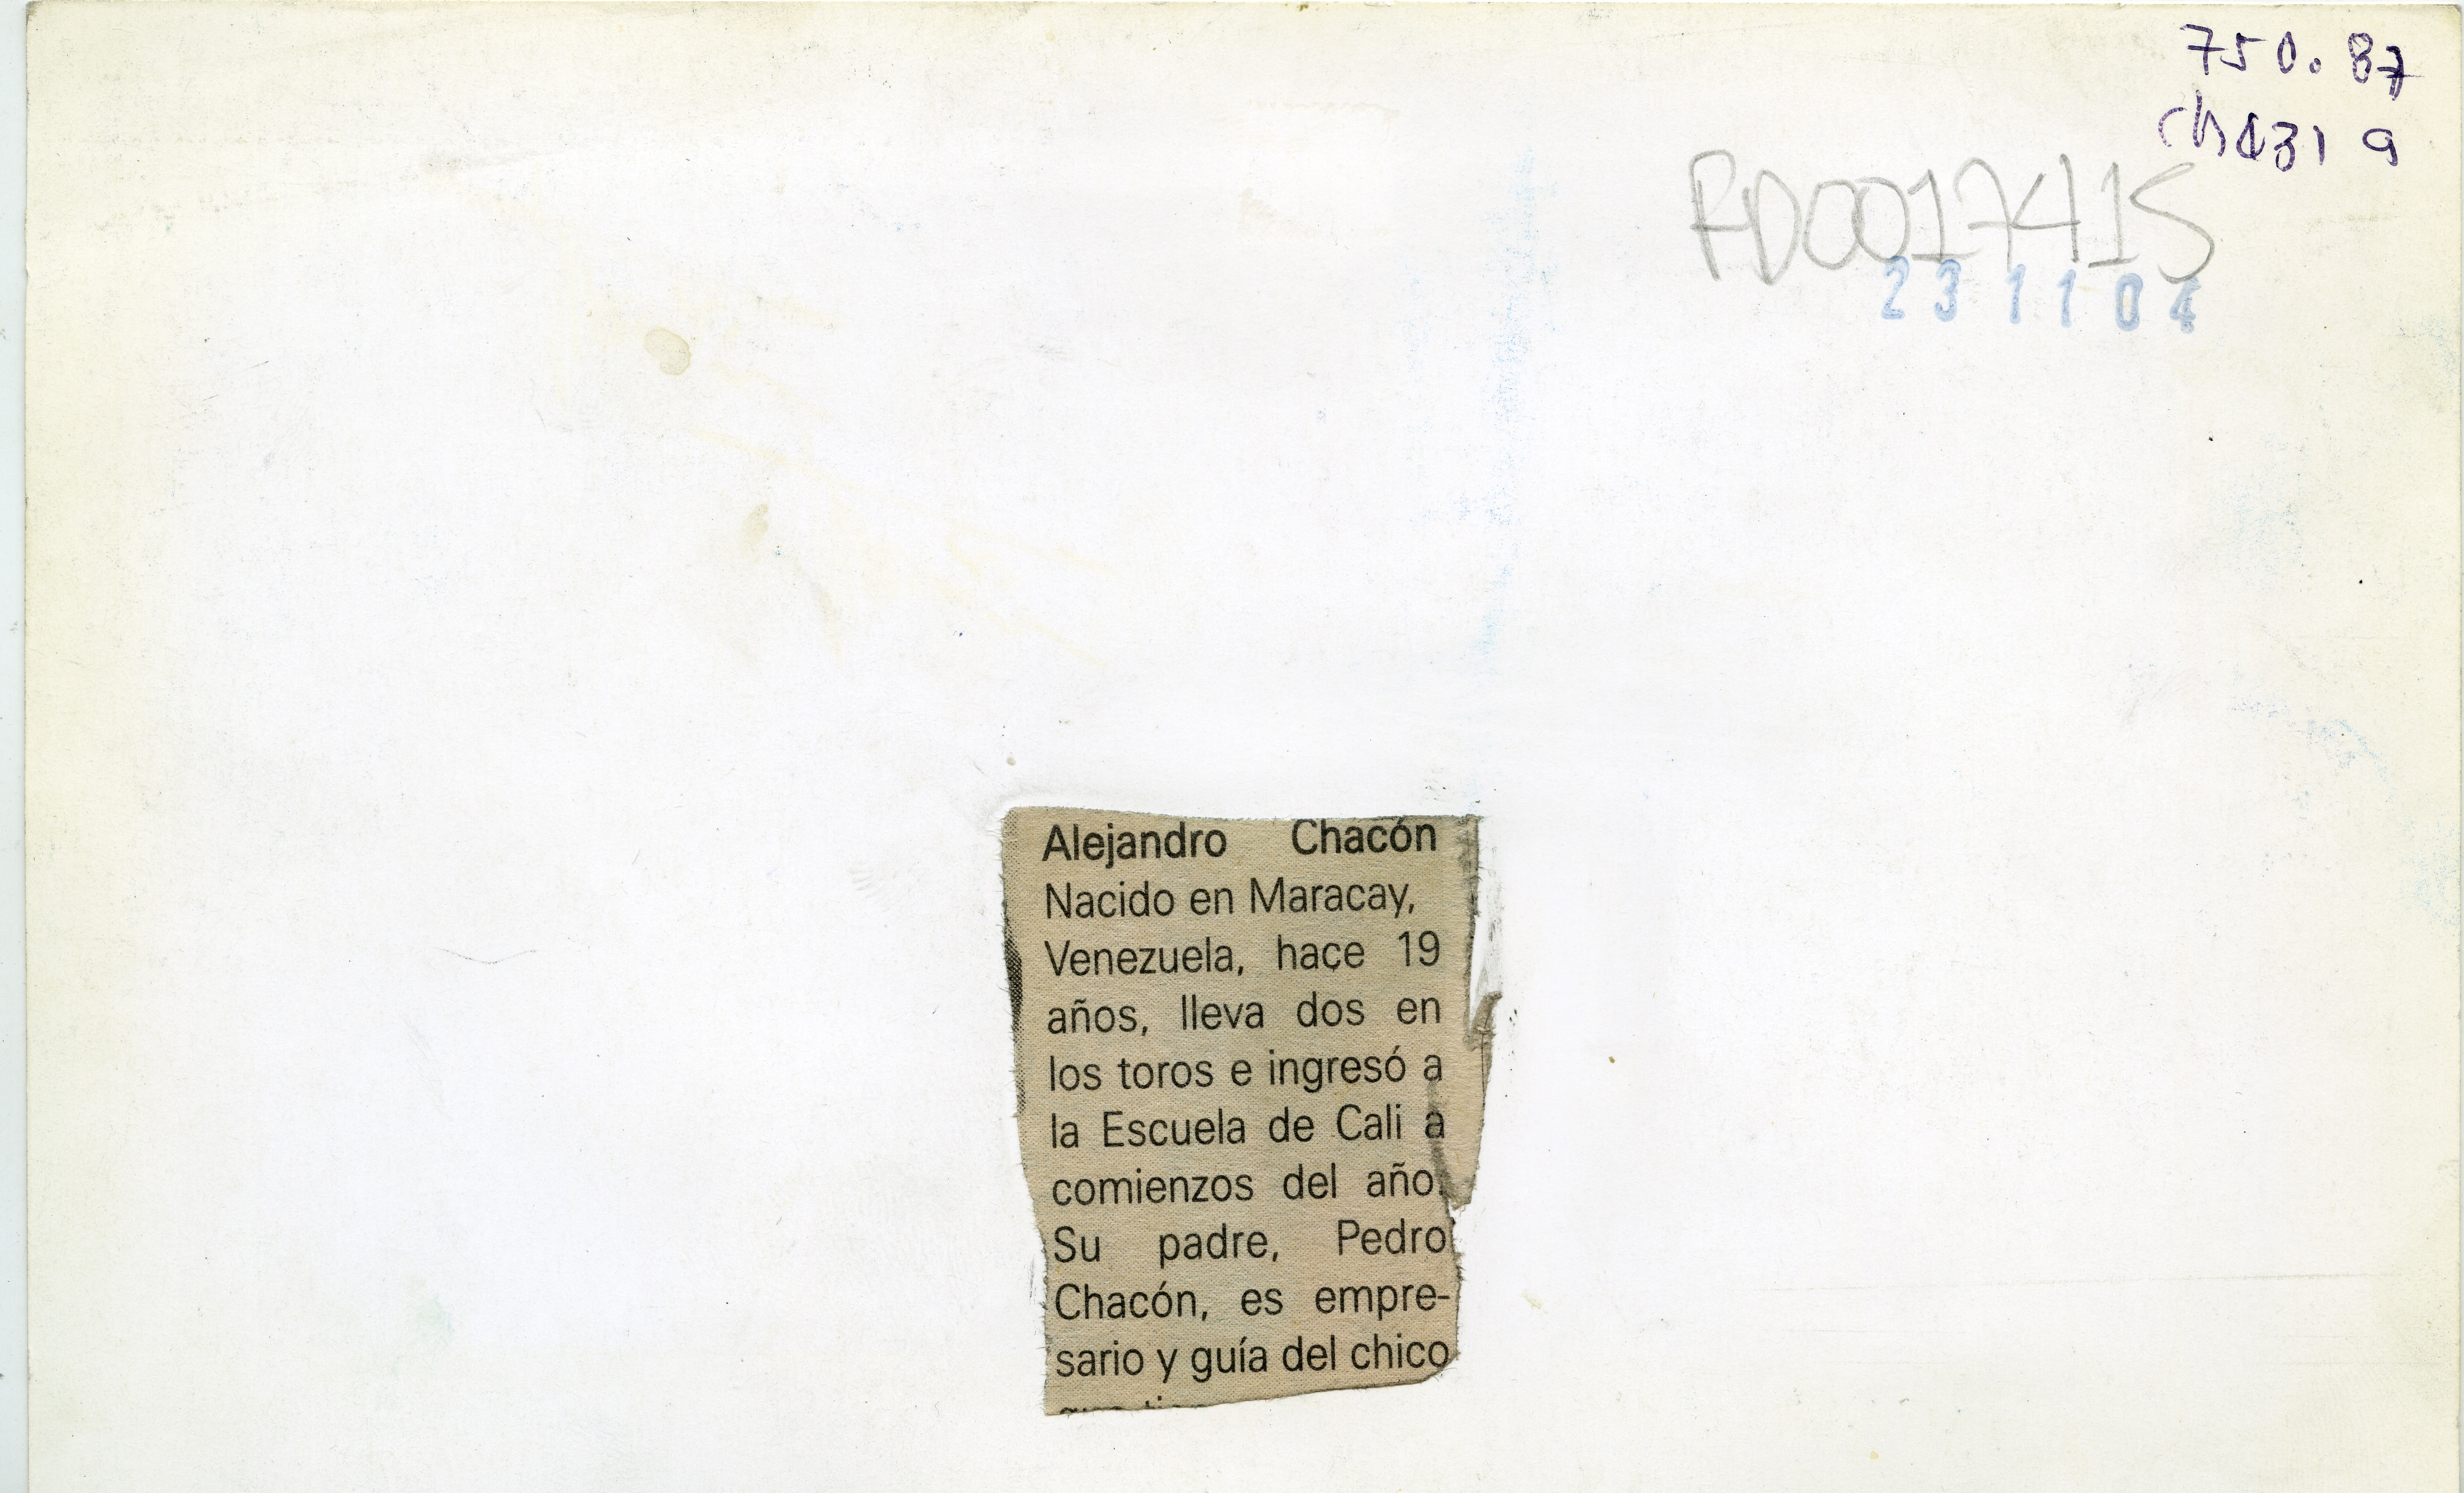 750.87
ch431 a
RD0017415
23 11 04
Alejandro Chacón
Nacido en Maracay,
Venezuela, hace 19
años, lleva dos en
los toros e ingresó a
la Escuela de Cali a
comienzos del año.
Su padre, Pedro
Chacón, es empre-
sario y guía del chico